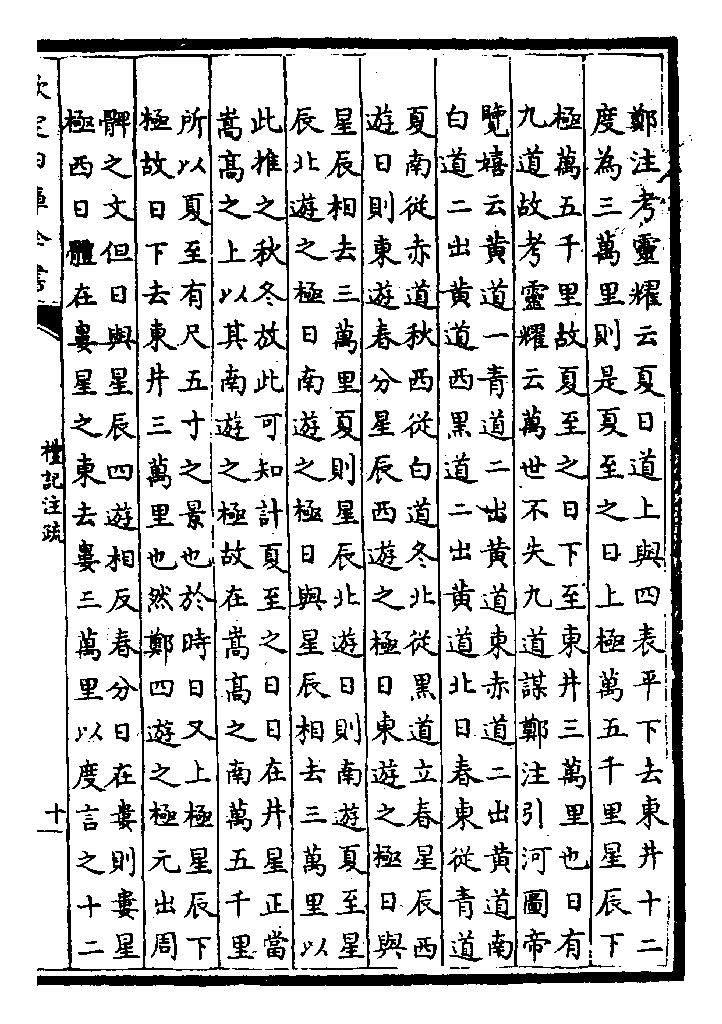 鄭注考靈耀云夏日道上與四表平下去東井十二
度為三萬里則是夏至之日上極萬五千里星辰下
極萬五千里故夏至之日下至東井三萬里也日有
九道故考靈耀云萬世不失九道謀鄭注引河圖帝
覽嬉云黄道一青道二出黄道東赤道二出黄道南
白道二出黄道西黑道二出黄道北日春東從青道
夏南從赤道秋西從白道冬北從黑道立春星辰西
遊日則東遊春分星辰西遊之極日東遊之極日與
星辰相去三萬里夏則星辰北遊日則南遊夏至星
辰北遊之極日南遊之極日與星辰相去三萬里以
此推之秋冬放此可知計夏至之日日在井星正當
嵩髙之上以其南遊之極故在嵩髙之南萬五千里
所以夏至有尺五寸之景也於時日又上極星辰下
極故日下去東井三萬里也然鄭四遊之極元出周
髀之文但日與星辰四遊相反春分日在婁則婁星
極西日體在婁星之東去婁三萬里以度言之十二
欽定四庫全書
禮記注疏
十一